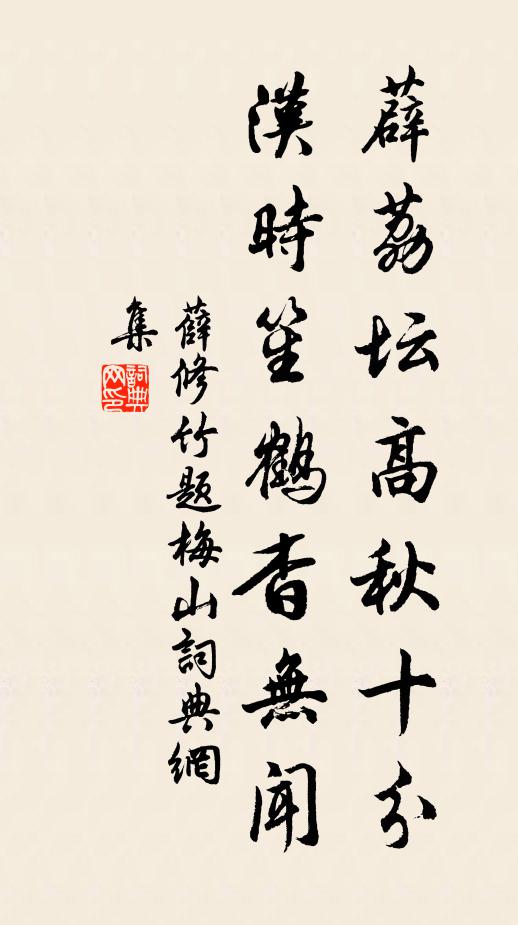 薜荔坛高秋十分
漢時笙鶴杳無聞
薛修竹题梅山詞典網
集
詞典网印